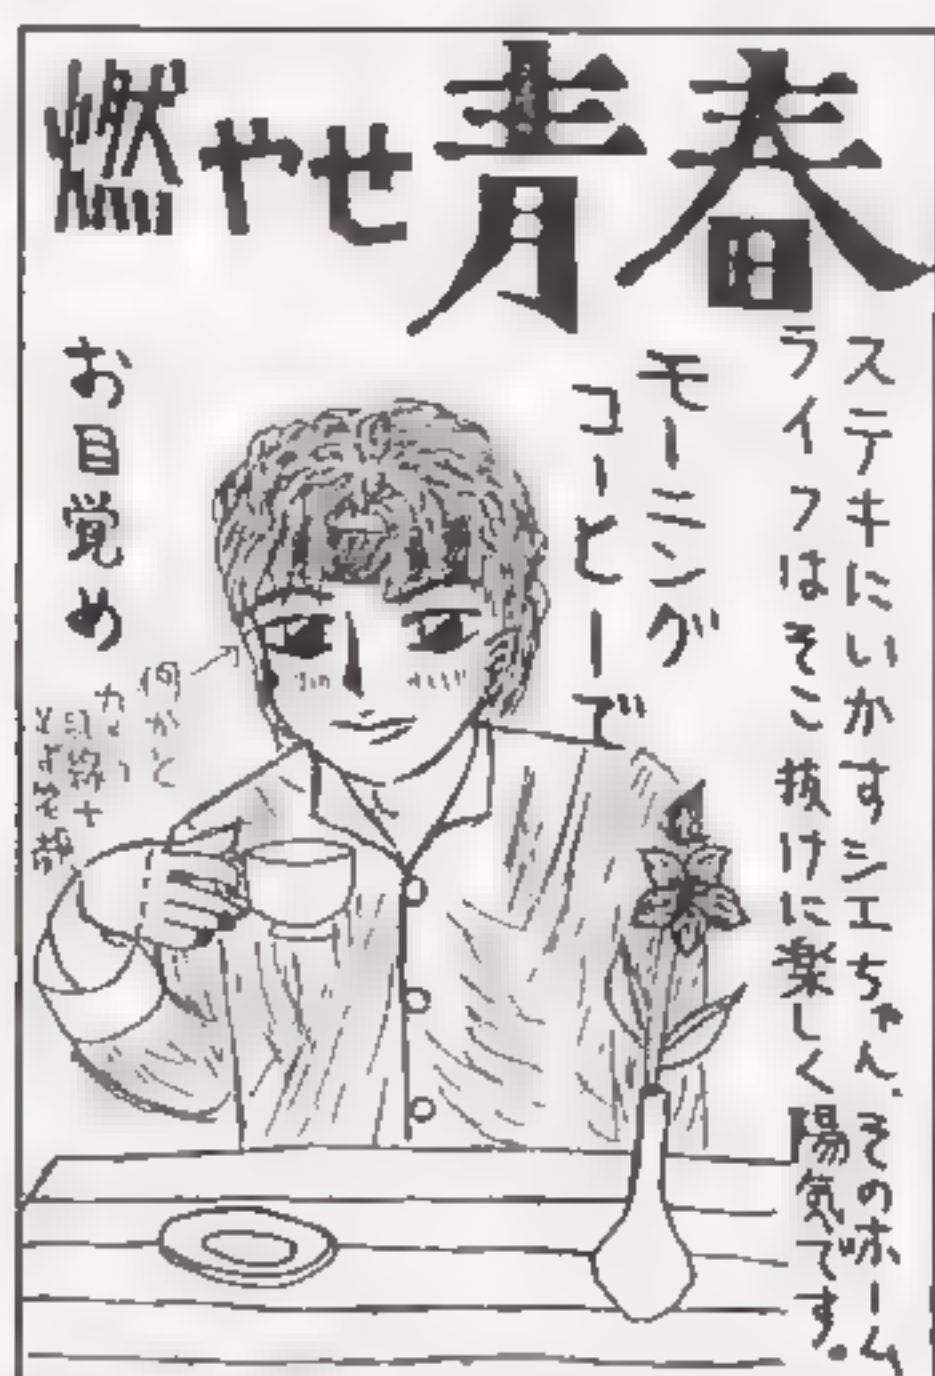 燃やせ青春
ステキにいかすシエちゃん、そのホーム
ライフはそこ抜けに楽しく陽気です。
モーニング
コーヒーで
お目覚め
何かと